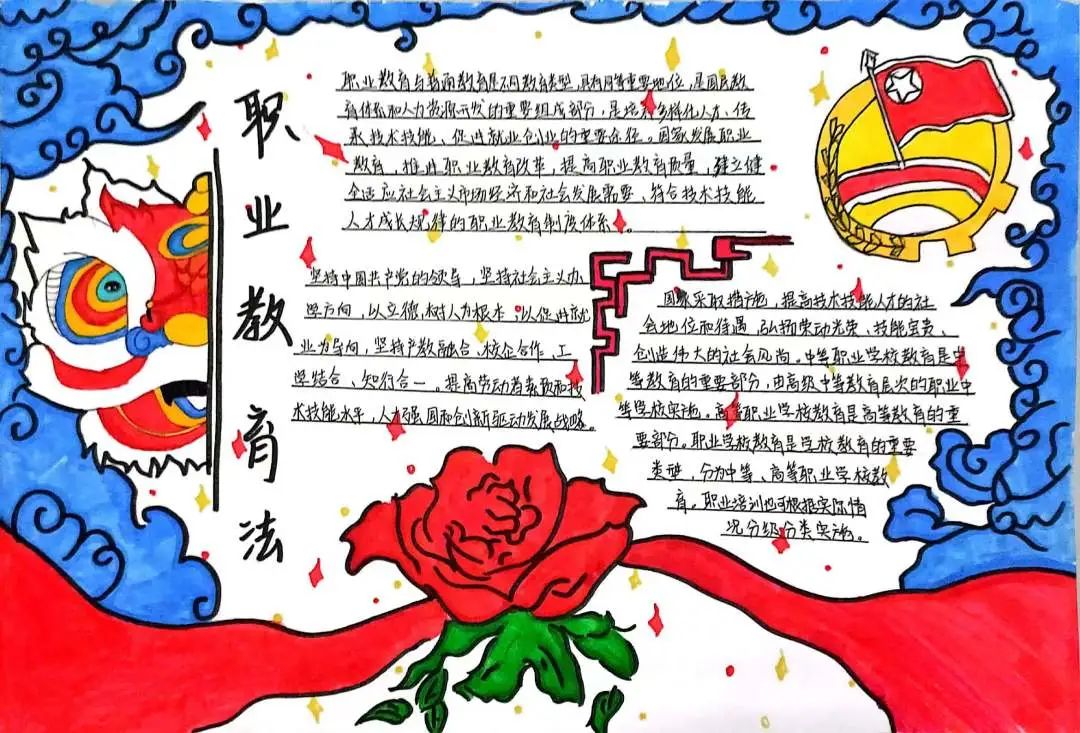 职业教育法
职业教育与普通教育是不同教育类型,具有同等重要地位,是国民教
育体系和人力资源开发的重要组成部分,是培养多样化人才、传
承技术技能、促进就业创业的重要途径。国家发展职业
教育,推进职业教育改革,提高职业教育质量,建立健
全适应社会主义市场经济和社会发展需要、符合技术技能
人才成长规律的职业教育制度体系。
坚持中国共产党的领导,坚持社会主义办
学方向,以立德树人为根本,以促进就
业为导向,坚持产教融合、校企合作,工
学结合、知行合一。提高劳动者素质和技
术技能水平,人才强国和创新驱动发展战略。
国家采取措施,提高技术技能人才的社
会地位和待遇,弘扬劳动光荣、技能宝贵、
创造伟大的社会风尚。中等职业学校教育是中
等教育的重要部分,由高级中等教育层次的职业中
等学校实施。高等职业学校教育是高等教育的重
要部分。职业学校教育是学校教育的重要
类型,分为中等、高等职业学校教
育。职业培训也可根据实际情
况分级分类实施。